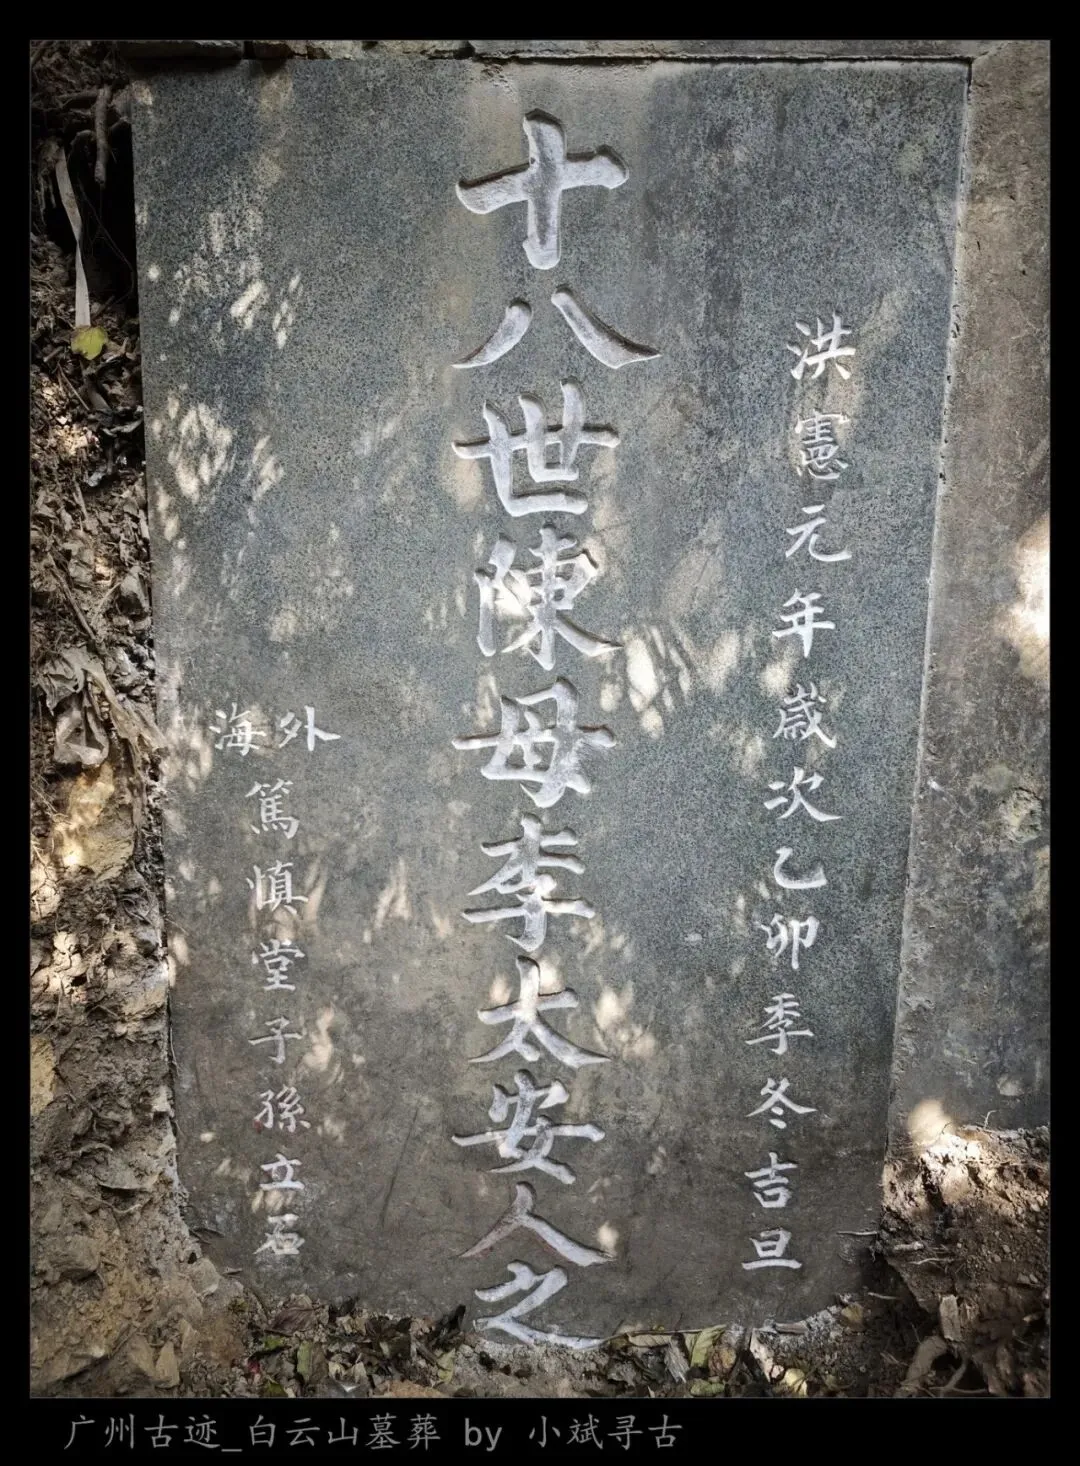 洪憲元年歲次乙卯季冬吉旦
十八世陳母李太安人之
外海
篤慎堂子孫立石
广州古迹_白云山墓葬 by 小斌寻古